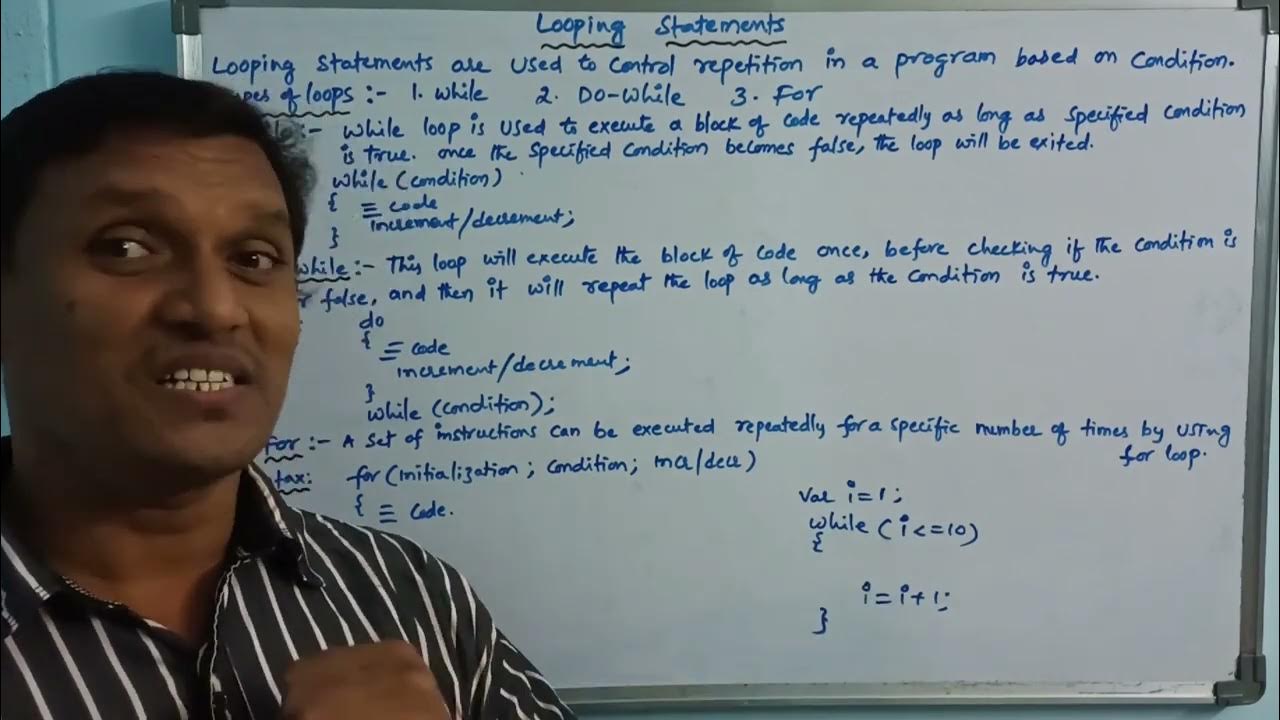 Looping Statements
Looping Statements are used to control repetition in a program based on Condition.
of loops :- 1. while 2. Do-while 3. For
:- while loop is used to execute a block of code repeatedly as long as specified condition
is true. once the specified condition becomes false, the loop will be exited.
while (condition)
{ code
increment/decrement;
}
while :- This loop will execute the block of code once, before checking if the condition is
false, and then it will repeat the loop as long as the condition is true.
do
{ code
increment/decrement;
}
while (condition);
for :- A set of instructions can be executed repeatedly for a specific number of times by using
for loop.
tax: for (initialization ; condition; incr/decr)
{ code.
var i=1;
while (i<=10)
{
i=i+1;
}